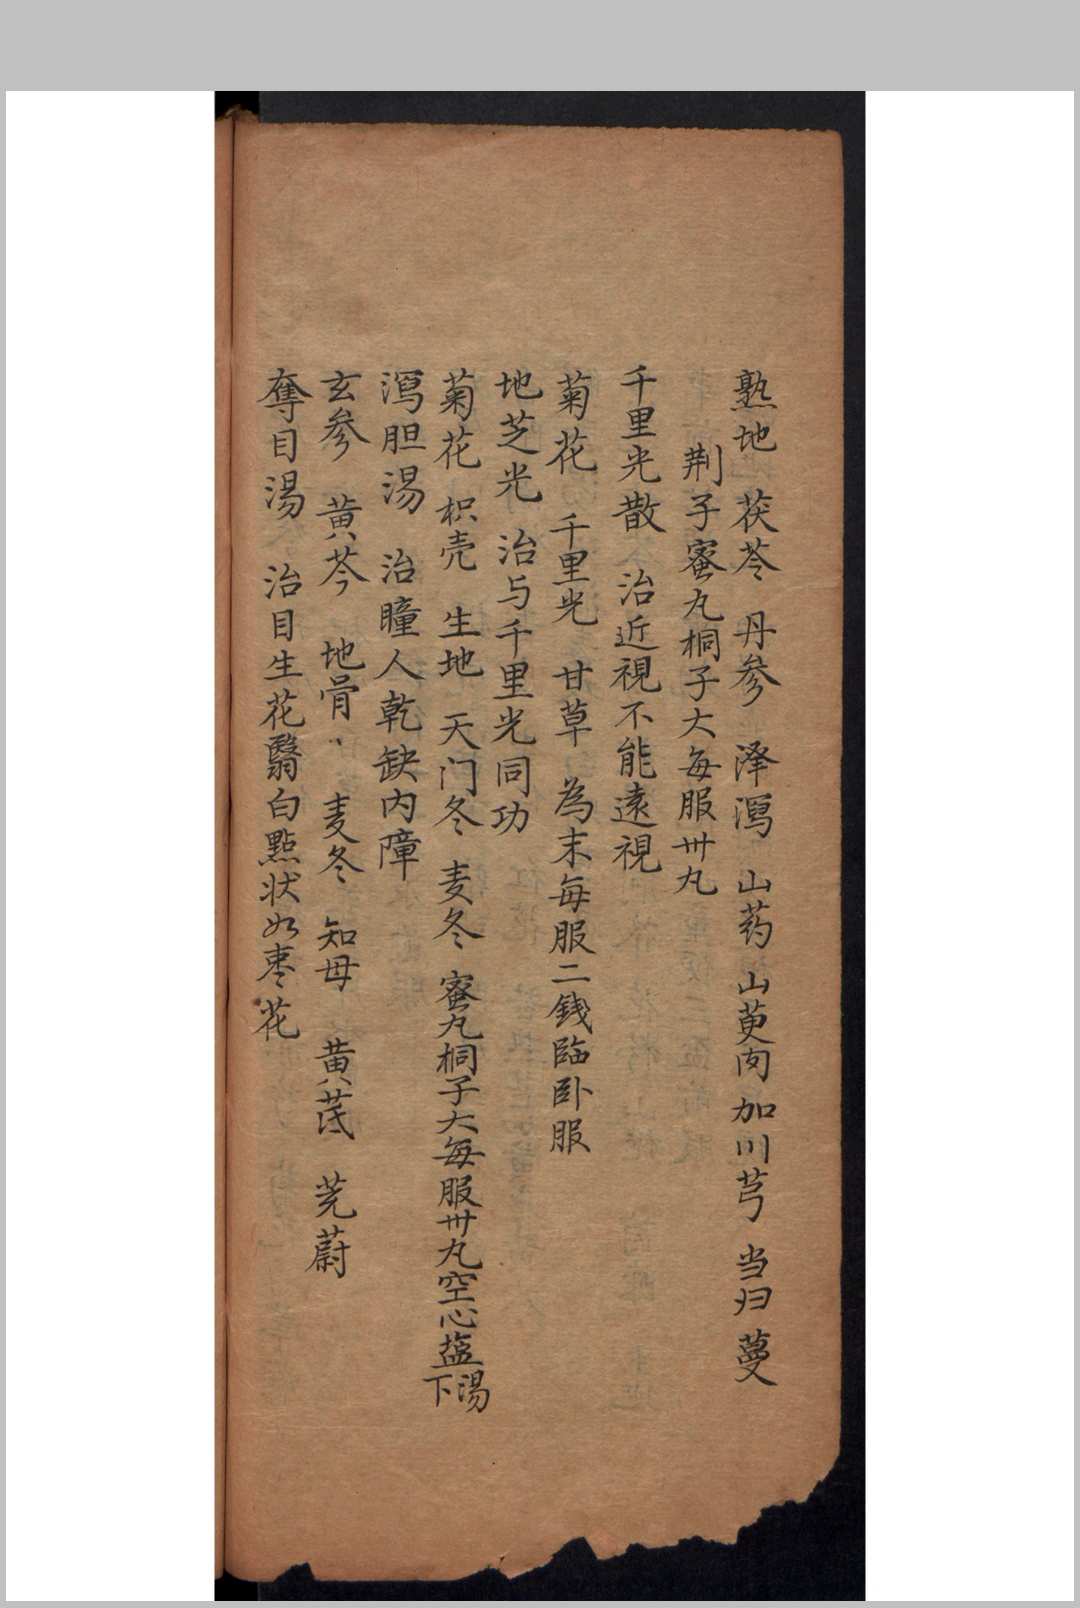 熟地 茯苓 丹参 泽瀉 山药 山萸肉 加川芎 当归 蔓
荆子蜜丸桐子大每服卅丸
千里光散 治近視不能遠視
菊花 千里光 甘草 為末每服二錢臨卧服
地芝光 治与千里光同功
菊花 枳壳 生地 天门冬 麦冬 蜜丸桐子大每服卅丸空心盐湯下
瀉胆湯 治瞳人乾缺内障
玄参 黄芩 地骨 麦冬 知母 黄茋 茺蔚
奪目湯 治目生花翳白點状如枣花